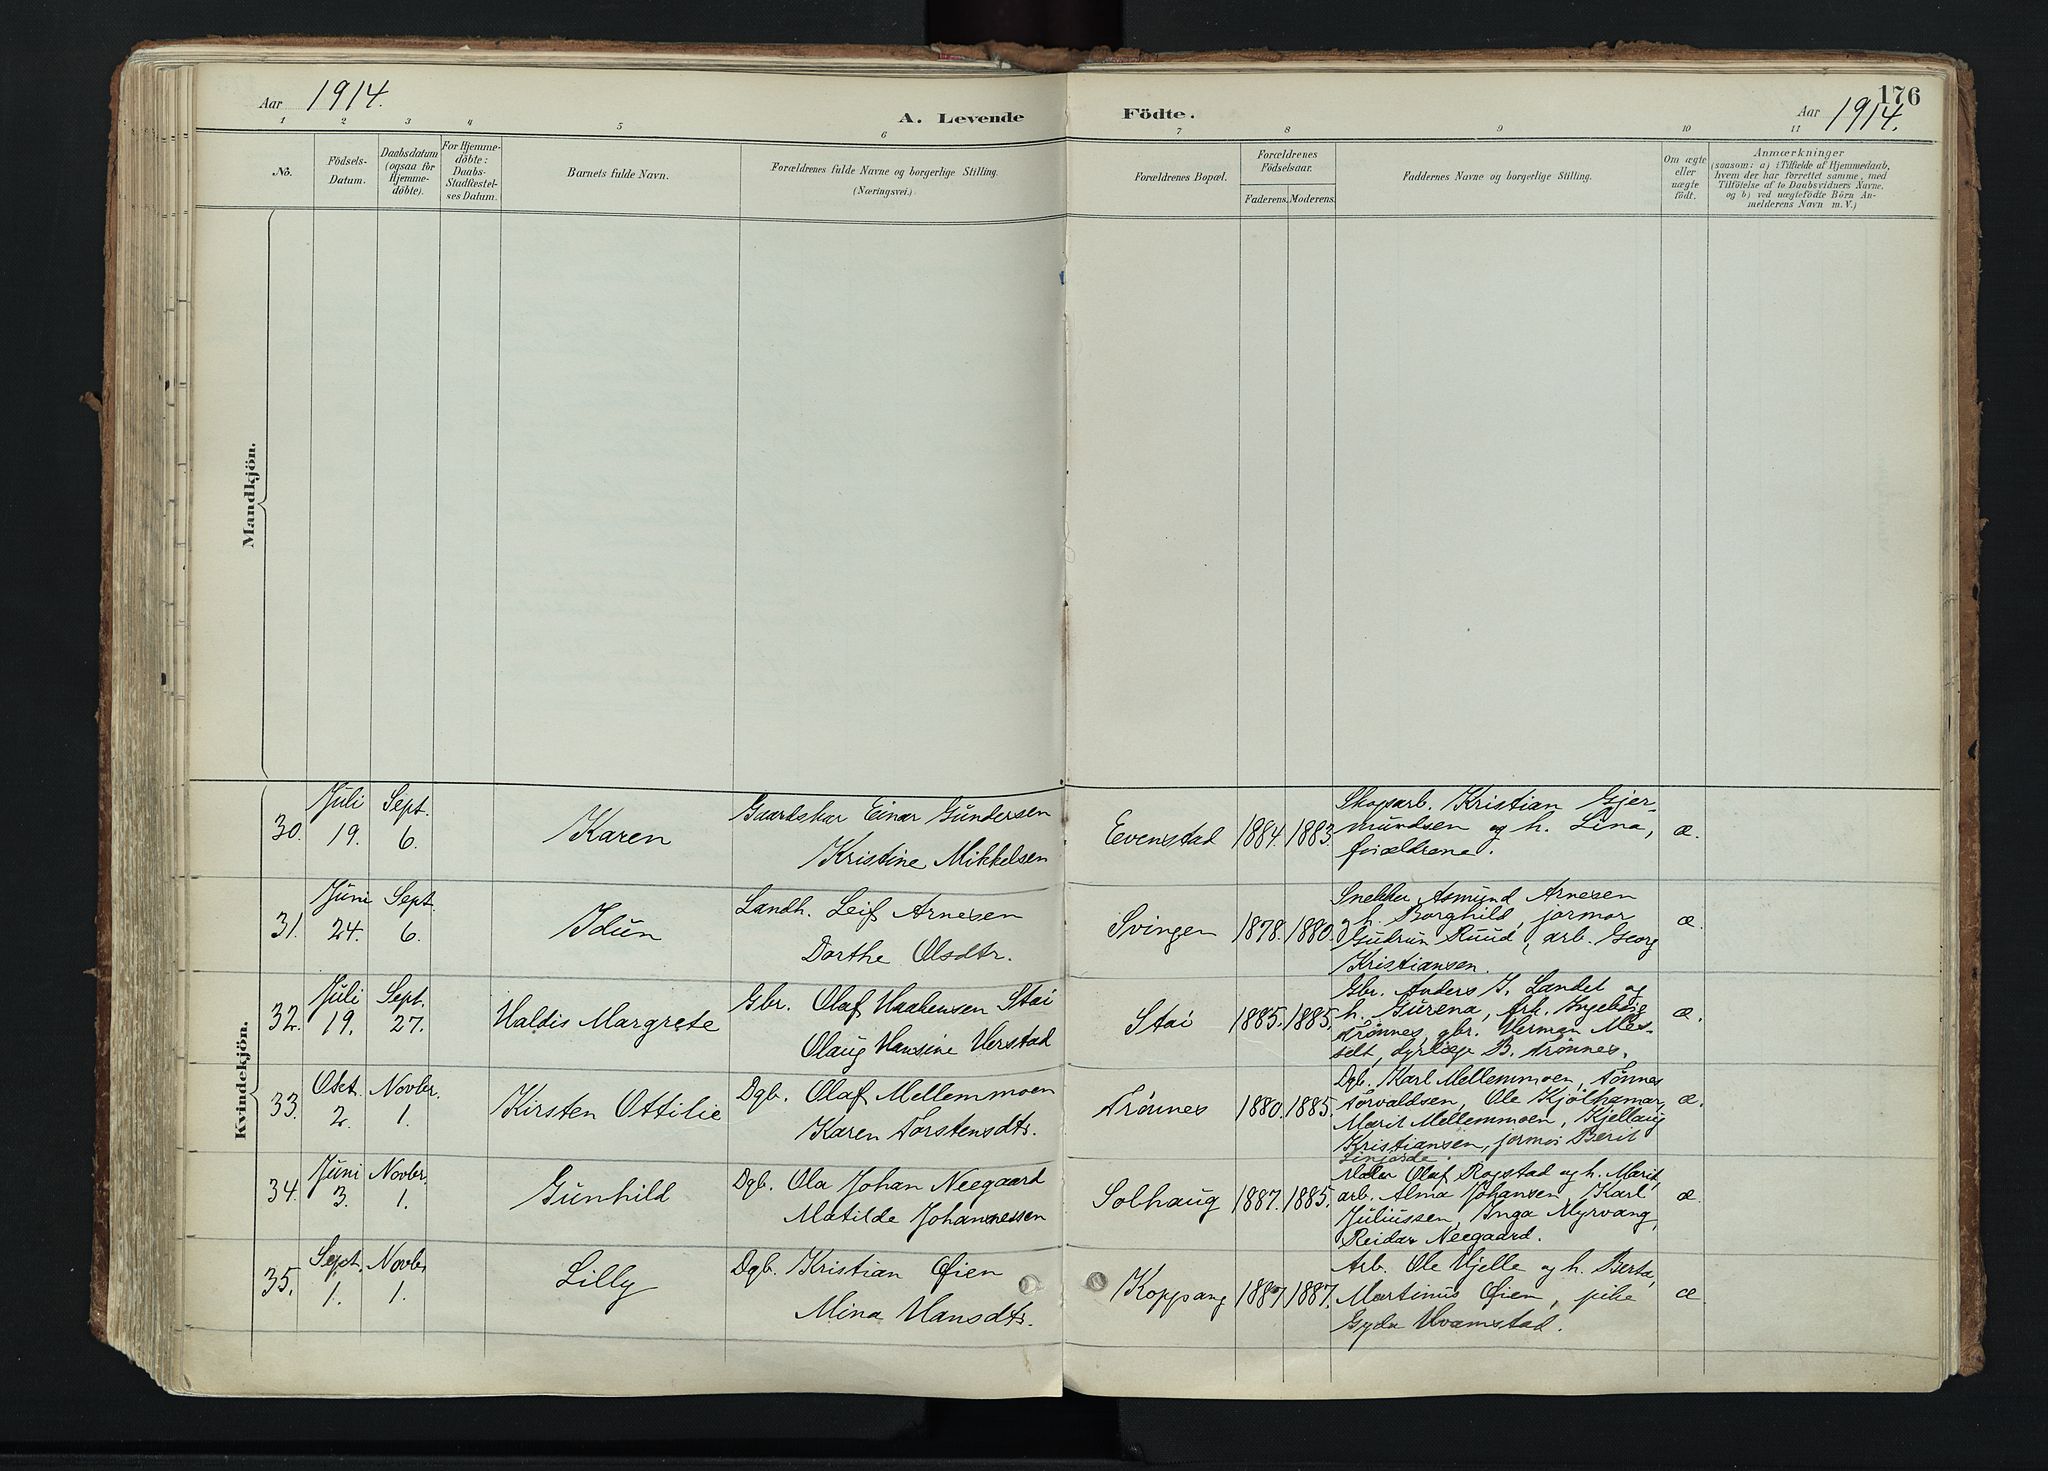 Aar 1914.
A. Levende Födte.
Aar 1914.
176
1 2 3 4 5 6 7 8 9 10 11
No.
Födsels-
Datum.
Daabsdatum
(ogsaa for
Hjemme-
döbte).
For Hjemme-
döbte:
Daabs-
Stadfæstel-
ses Datum.
Barnets fulde Navn.
Forældrenes fulde Navne og borgerlige Stilling.
(Næringsvei.)
Forældrenes Bopæl.
Forældrenes
Födselsaar.
Faderens. Moderens.
Faddernes Navne og borgerlige Stilling.
Om ægte
eller
uægte
födt.
Anmærkninger
(saasom: a) i Tilfælde af Hjemmedaab,
hvem der har forrettet samme, med
Tilföielse af to Daabsvidners Navne,
og b) ved uægtefödte Börn An-
melderens Navn m. V.)
Mandkjön.
Kvindekjön.
30. Juli 19. Sept. 6.
Karen
Gaardskar Einar Gundersen
Kristine Mikkelsen
Evenstad 1884. 1883.
Skogsarb. Kristian Gjer-
mundsen og h. Lina,
forældrene.
æ.
31. Juni 24. Sept. 6.
Idun
Landh. Leif Arnesen
Dorthe Olsdtr.
Svingen 1878. 1880.
Snekker Asmund Arnesen
og h. Borghild, jormor
Gudrun Ruud, arb. Georg
Kristiansen.
æ.
32. Juli 19. Sept. 27.
Haldis Margrete
Gbr. Olaf Haakensen Stai
Olaug Hansine Herstad
Stai 1885. 1885.
Gbr. Anders J. Landet og
h. Gurena, Frk. Ingeborg
Trønnes, gbr. Herman Mes-
selt, dyrlæge B. Trønnes.
æ.
33. Okt. 2. Novbr. 1.
Kirsten Ottilie
Dgb. Olaf Mellemmoen
Karen Torstensdtr.
Trønnes 1880. 1885.
Dgb. Karl Mellemmoen, Tønnes
Torvaldsen, Ole Kjølhamar,
Marit Mellemmoen, Kjellaug
Kristiansen, jormor Berit
æ.
34. Juni 3. Novbr. 1.
Gunhild
Dgb. Ola Johan Neegaard
Matilde Johannessen
Solhaug 1887. 1885.
Maler Olaf Rogstad og h. Marit,
arb. Alma Johansen, Karl
Juliussen, Inga Myrvang,
Reidar Neegaard.
æ.
35. Sept. 1. Novbr 1.
Lilly
Dgb. Kristian Øien
Mina Hansdtr.
Koppang 1887. 1887.
Arb. Ole Hjelle og h. Berta,
Martinus Øien, pike
Gyda Hvamstad.
æ.